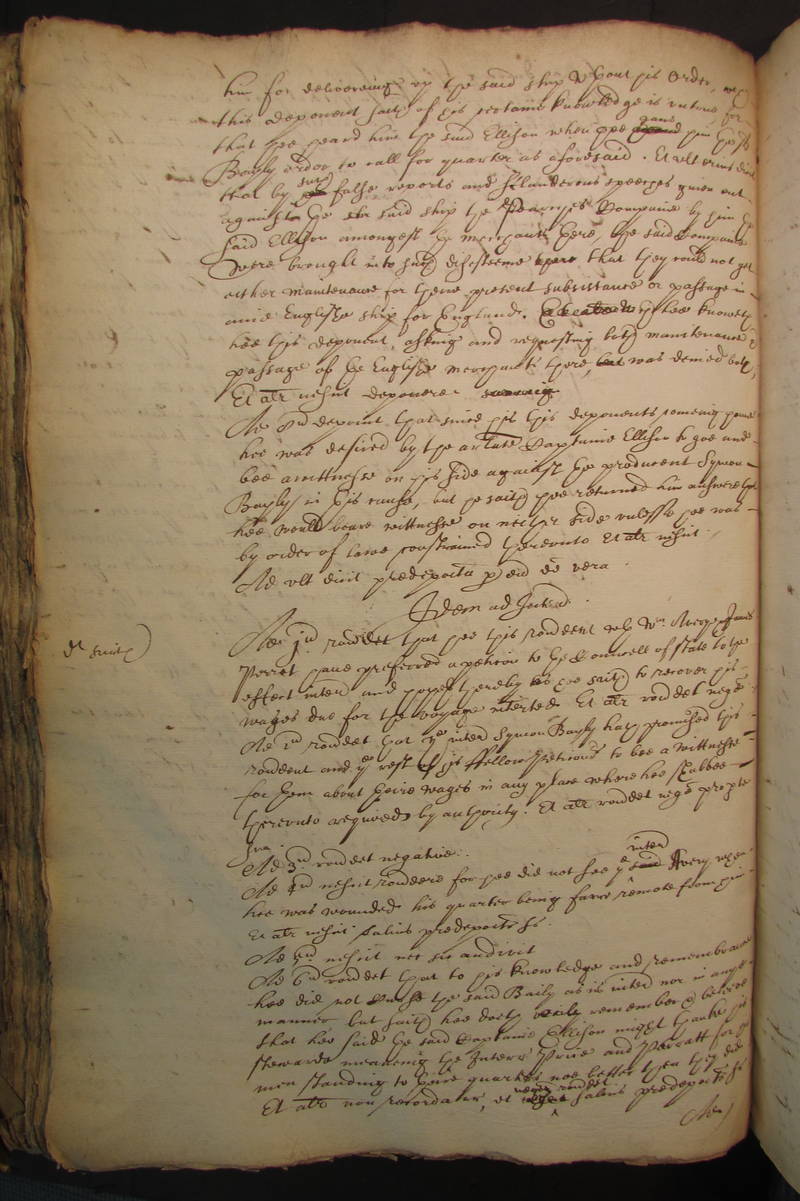 him for delivering up the said ship without his Order, and
this deponent saith of his certaine knowledge is untrue for
that hee heard him the said Ellison when hee gave him the sd
Bayly order to call for quarter as aforesaid. Et ult
that by such false reports and slanderous speeches given out
against the said ship the Companie by him the
said Ellison amongst the merchants there, the said Companie
were brought into such disesteeme that they could not get
either maintenance for theire present subsistance or passage in
anie English ship for England. hee knoweth
hee this deponent, asking and requesting both maintenance &
passage of the English merchants there, was denied both,
Et alr nescit deponere
Ad deponit that since his this deponents coming home
hee was desired by the arlate Captaine Ellison to goe and
bee a wittnesse on his side against the producent Symon
Bayly in this cause, but he saith hee returned him answere that
hee would beare wittnesse on neither side unlesse hee was
by order of lawe constrained thereunto Et alr nescit.
Ad ult dicit predeposita p eum ee vera.
Idem ad Interria.
Ad jum rondet that hee this rondent with Wm Avery, James
Perret have preferred a petition to the Councell of State to the
effect interr and hopes thereby as hee saith to recover his
wages due for the voyage interted Et alr rondet nega
Ad 2um rondet that the interr Symon Bayly hath promised this
rondent and ye rest of his fellow to bee a wittnesse
for them about theire wages in any place where hee shalbee
thereunto required by authority. Et alr rondet nega
sua.
Ad 3um rondet negative.
Ad 4um nescit rondere for hee did not see ye interr Avery when
hee was wounded his quarter being farre remote from him
Et alr nescit salvis predepositis
Ad 5um nescit nec audivit
Ad 6um rondet that to his knowledge and remembrance
hee did not the said Baily as is interr nor in anye
manner but saith hee doth remember & beleeve
that hee said the said Captaine Ellison might thanke his
stewards meaning the Interr Price and Perratt for
men standing to theire quarters noe better then they did
Et alr non recordatur, et salvis predepositis
Ad